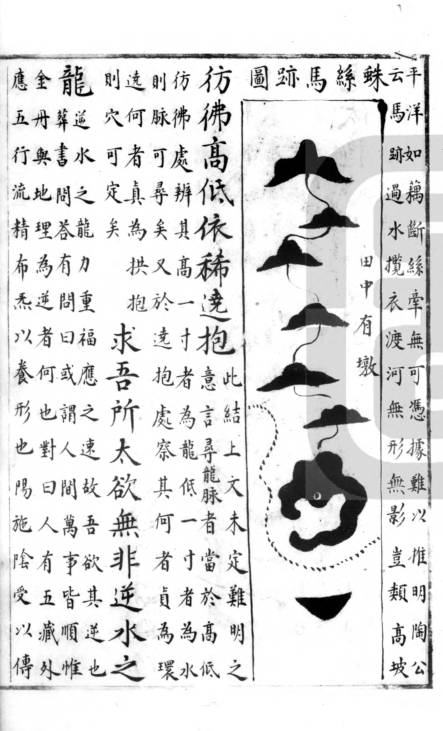 平洋如藕斷絲牽無可憑據難以推明陶公
云馬跡過水攬衣渡河無形無影豈類高坡
蛛絲馬跡圖
田中有墩
彷彿高低依稀遶抱
此結上文未定難明之
意言尋龍脉者當於高低
彷彿處辨其高一寸者為龍低一寸者為水
則脉可尋矣又於遶抱處察其何者貞為環
遶何者貞為拱抱
則穴可定矣
求吾所太欲無非逆水之
龍
逆水之龍力重福應之速故吾欲其逆也
葬書問答有問曰或謂人間萬事皆順惟
金丹與地理為逆者何也對曰人有五藏外
應五行流精布炁以養形也陽施陰受以傳